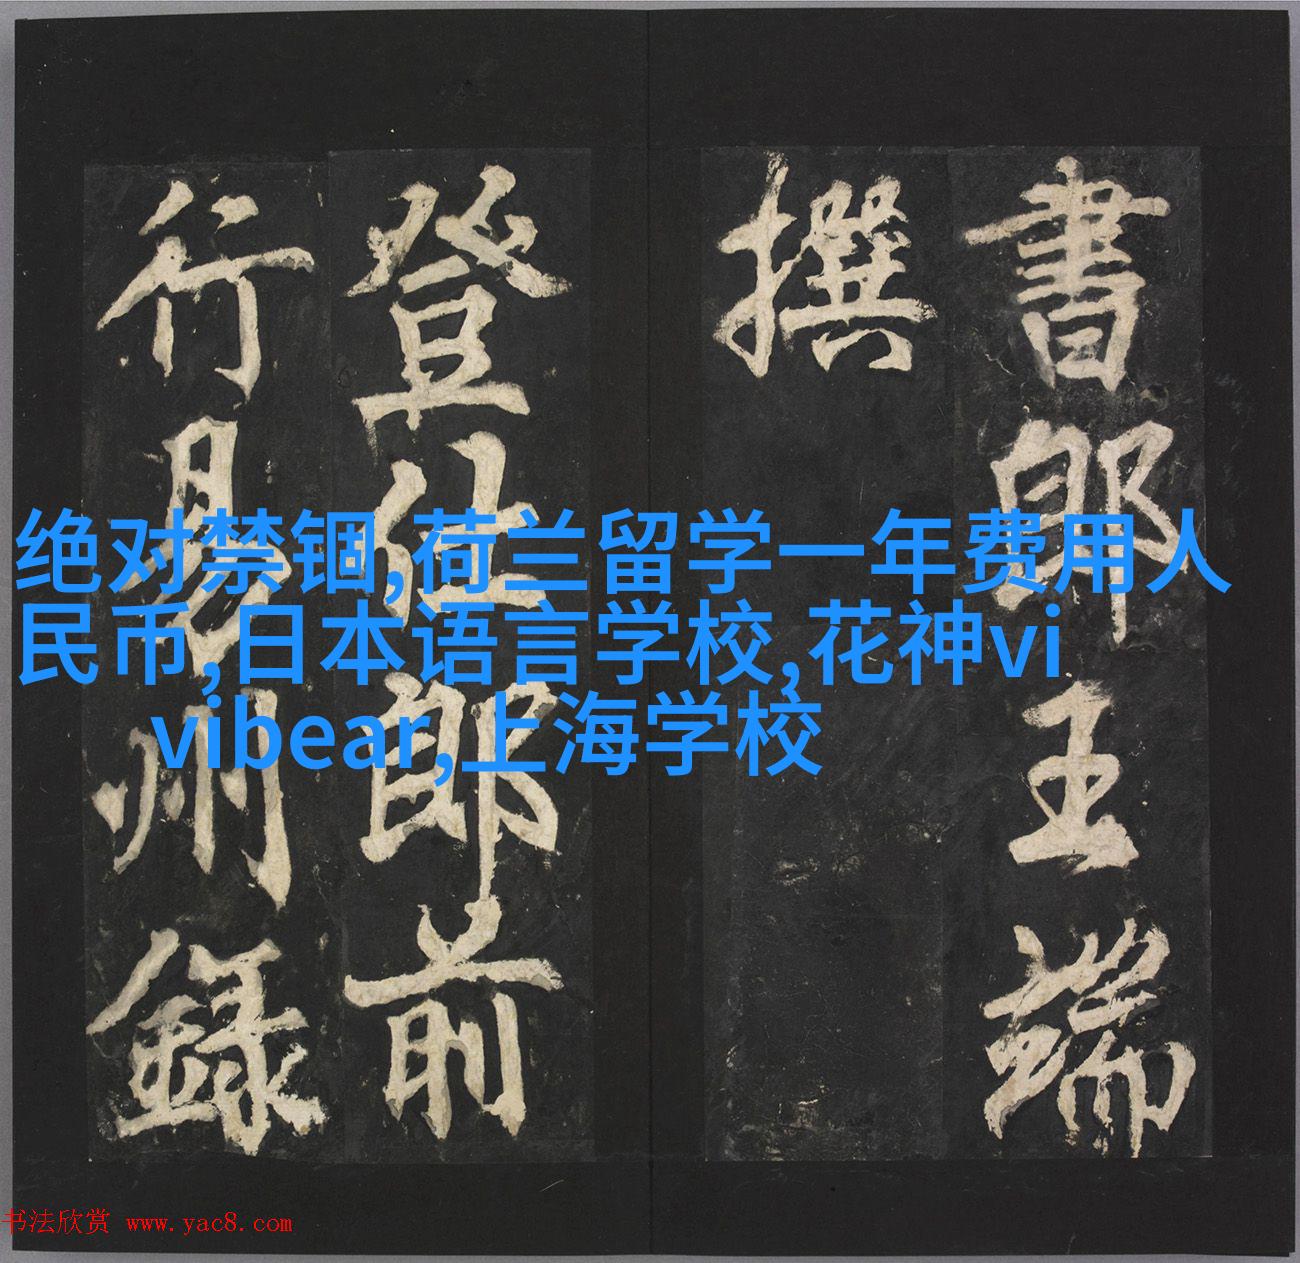 書郎王端
撰
登仕郎前
行易州錄
绝对禁锢,荷兰留学一年费用人
民币,日本语言学校,花神vi
vibear,上海学校
书法欣赏 www.yac8.com